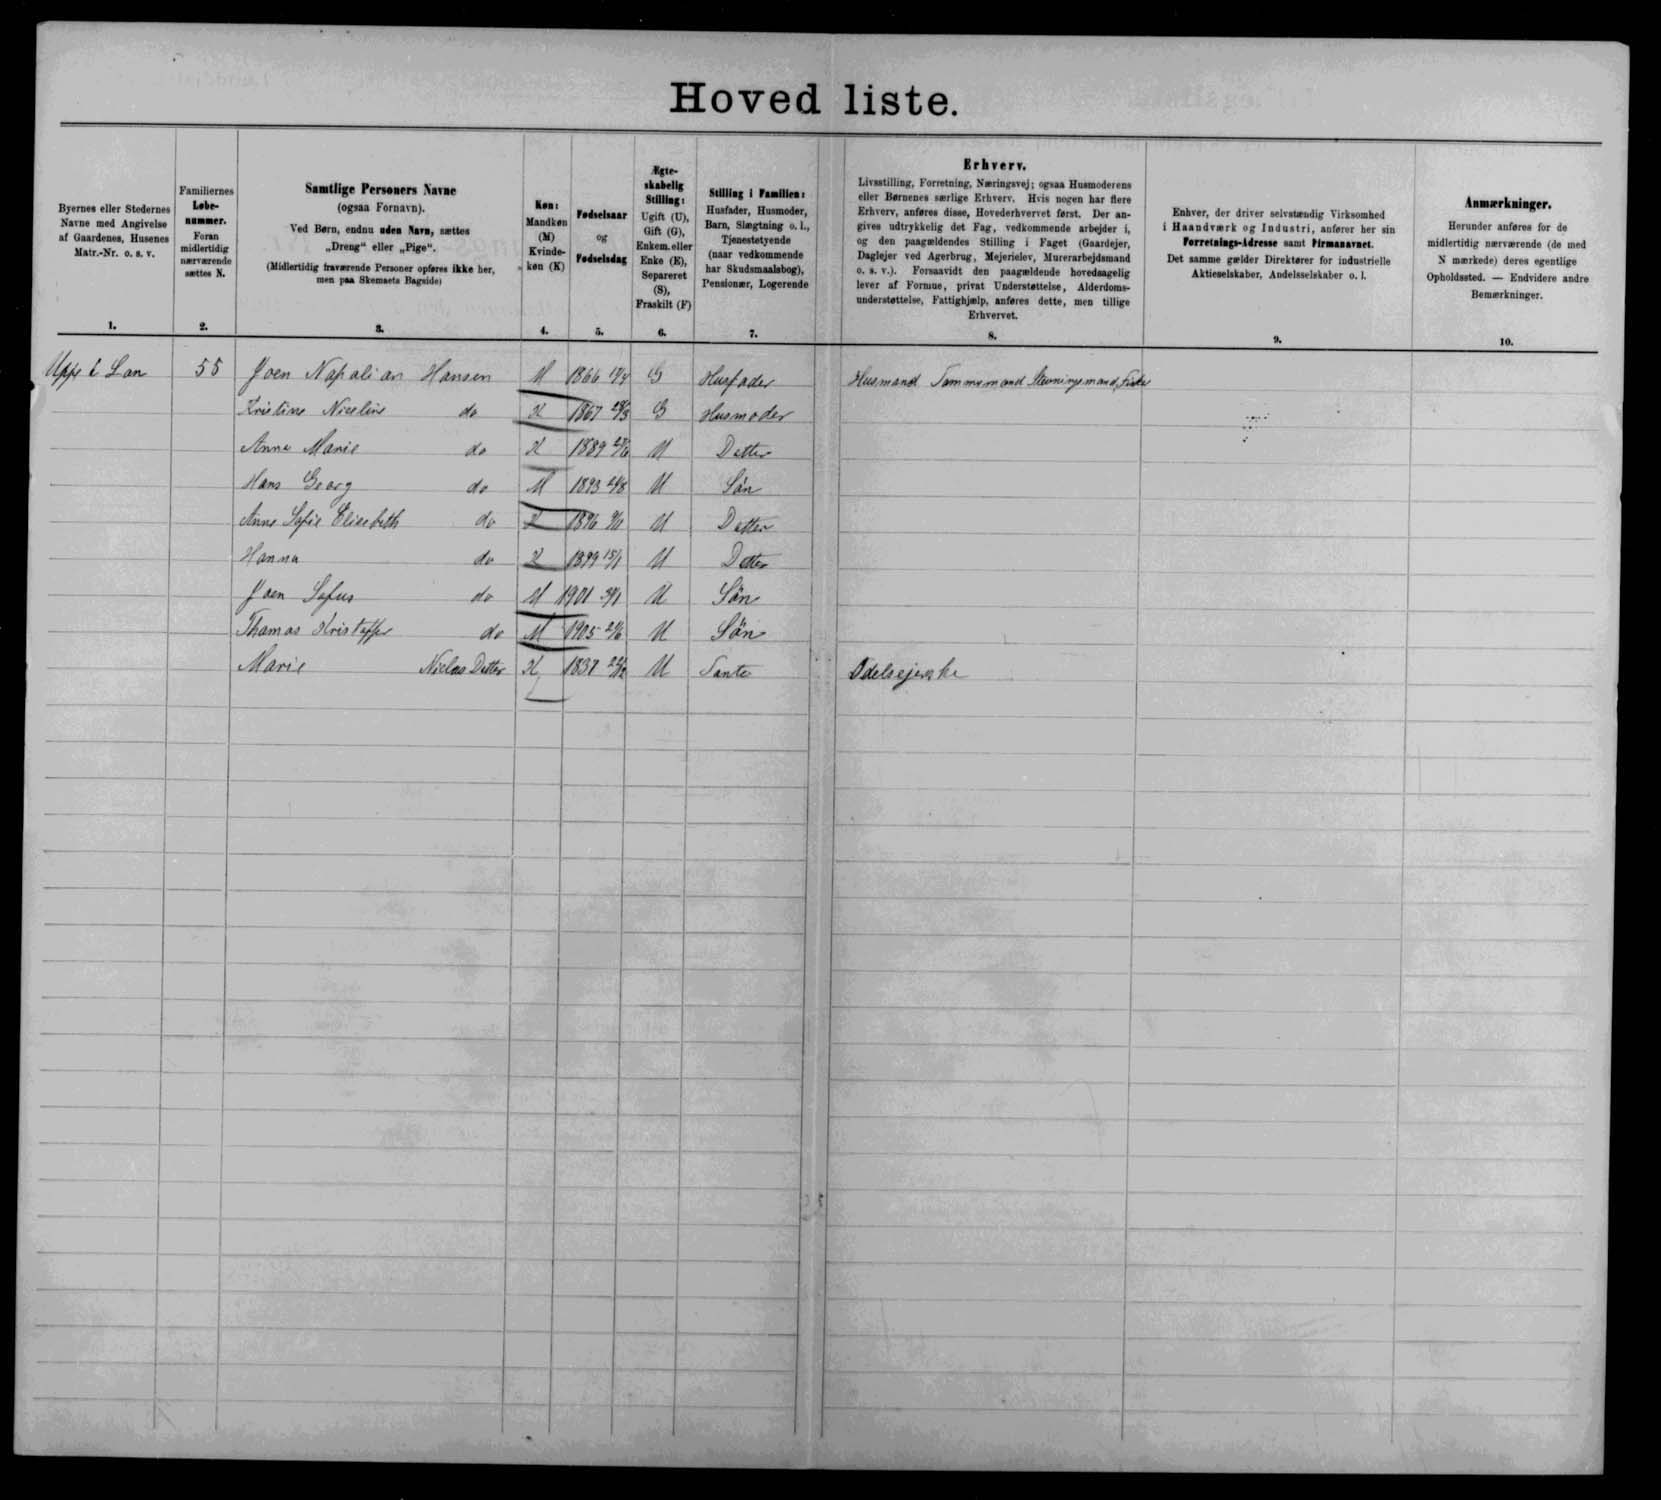 Hoved liste.
Byernes eller Stedernes
Navne med Angivelse
af Gaardenes, Husenes
Matr.-Nr. o. s. v.
1.
Familiernes
Løbe-
nummer.
Foran
midlertidig
nærværende
sættes N.
2.
Samtlige Personers Navne
(ogsaa Fornavn).
Ved Børn, endnu uden Navn, sættes
„Dreng“ eller „Pige“.
(Midlertidig fraværende Personer opføres ikke her,
men paa Skemaets Bagside)
3.
Køn:
Mandkøn
(M)
Kvinde-
køn (K)
4.
Fødselsaar
og
Fødselsdag
5.
Ægte-
skabelig
Stilling:
Ugift (U),
Gift (G),
Enkem. eller
Enke (E),
Separeret
(S),
Fraskilt (F)
6.
Stilling i Familien:
Husfader, Husmoder,
Barn, Slægtning o. l.,
Tjenestetyende
(naar vedkommende
har Skudsmaalsbog),
Pensionær, Logerende
7.
Erhverv.
Livsstilling, Forretning, Næringsvej; ogsaa Husmoderens
eller Børnenes særlige Erhverv. Hvis nogen har flere
Erhverv, anføres disse, Hovederhvervet først. Der an-
gives udtrykkelig det Fag, vedkommende arbejder i,
og den paagældendes Stilling i Faget (Gaardejer,
Daglejer ved Agerbrug, Mejerielev, Murerarbejdsmand
o. s. v.). Forsaavidt den paagældende hovedsagelig
lever af Formue, privat Understøttelse, Alderdoms-
understøttelse, Fattighjælp, anføres dette, men tillige
Erhvervet.
8.
Enhver, der driver selvstændig Virksomhed
i Haandværk og Industri, anfører her sin
Forretnings-Adresse samt Firmanavnet.
Det samme gælder Direktører for industrielle
Aktieselskaber, Andelsselskaber o. l.
9.
Anmærkninger.
Herunder anføres for de
midlertidig nærværende (de med
N mærkede) deres egentlige
Opholdssted. — Endvidere andre
Bemærkninger.
10.
Uppe i Lon 55 Joen Napolian Hansen M 1866 G Husfader Husmand Tømmermand Stevningsmand, Fisker
Kristine Nicoline do K 1867 G Husmoder
Anna Marie do K 1889 U Datter
Hans Georg do M 1893 U Sön
Anna Sofie Elisebeth do K 1896 U Datter
Hanna do K 1899 15/1 U Datter
Joen Sofus do M 1901 U Sön
Thomas Kristoffer do M 1905 U Sön
Marie Niclas Datter K 1837 U Tante Odelsejerske